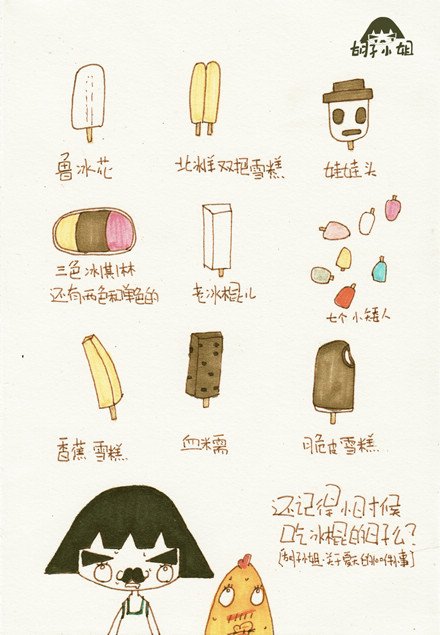 胡子小姐
魯冰花
北冰洋双把雪糕
娃娃头
三色冰淇淋
还有两色和单色的
老冰棍儿
七个小矮人
香蕉雪糕
血米糯
脆皮雪糕
还记得小时候
吃冰棍的日子么?